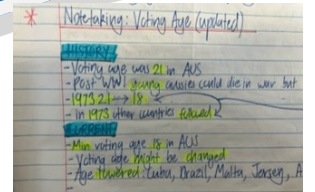 * Notetaking: Voting Age (updated)
HISTORY
- Voting age was 21 in AUS
- Post WW1 young aussies could die in war but
- 1973 21 → 18
- in 1973 other countries followed
CURRENT
- Min voting age 18 in AUS
- Voting age might be changed
- Age lowered: Cuba, Brazil, Malta, Jersey, A